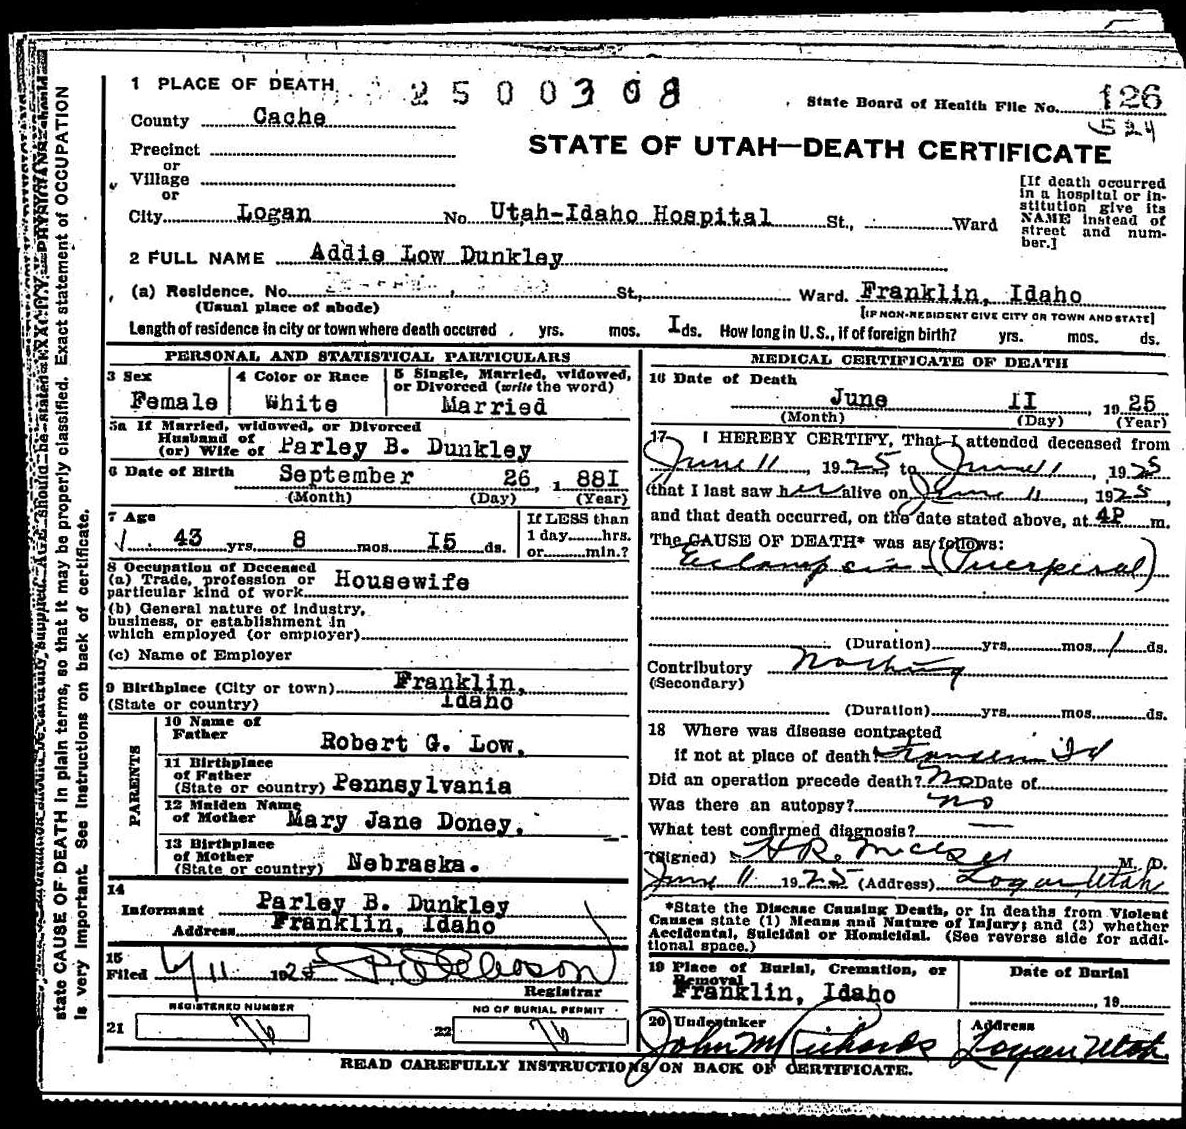 1 PLACE OF DEATH
2500308
State Board of Health File No. 126
524
County Cache
STATE OF UTAH—DEATH CERTIFICATE
Precinct
or
Village
or
City Logan No Utah-Idaho Hospital St., Ward
[If death occurred
in a hospital or in-
stitution give its
NAME instead of
street and num-
ber.]
2 FULL NAME Addie Low Dunkley
(a) Residence. No. St., Ward. Franklin, Idaho
(Usual place of abode)
[IF NON-RESIDENT GIVE CITY OR TOWN AND STATE]
Length of residence in city or town where death occured yrs. mos. I ds. How long in U.S., if of foreign birth? yrs. mos. ds.
PERSONAL AND STATISTICAL PARTICULARS
3 Sex
Female
4 Color or Race
White
5 Single, Married, widowed,
or Divorced (write the word)
Married
5a If Married, widowed, or Divorced
Husband of
(or) Wife of Parley B. Dunkley
6 Date of Birth September 26, 1 88I
(Month) (Day) (Year)
7 Age
43 yrs. 8 mos. I5 ds.
If LESS than
1 day hrs.
or min.?
8 Occupation of Deceased
(a) Trade, profession or
particular kind of work Housewife
(b) General nature of industry,
business, or establishment in
which employed (or employer)
(c) Name of Employer
9 Birthplace (City or town) Franklin,
(State or country) Idaho
PARENTS
10 Name of
Father Robert G. Low,
11 Birthplace
of Father
(State or country) Pennsylvania
12 Maiden Name
of Mother Mary Jane Doney,
13 Birthplace
of Mother
(State or country) Nebraska.
14
Informant Parley B. Dunkley
Address Franklin, Idaho
15
Filed 6/11 1925
Registrar
REGISTERED NUMBER
21 76
NO OF BURIAL PERMIT
22 76
MEDICAL CERTIFICATE OF DEATH
16 Date of Death
June II, 1925
(Month) (Day) (Year)
17 I HEREBY CERTIFY, That I attended deceased from
June 11, 1925 to June 11, 1925
that I last saw her alive on June 11, 1925,
and that death occurred, on the date stated above, at 4P m.
The CAUSE OF DEATH* was as follows:
Eclampsia (Puerperal)
(Duration) yrs. mos. 1 ds.
Contributory Nothing
(Secondary)
(Duration) yrs. mos. ds.
18 Where was disease contracted
if not at place of death? Franklin Id
Did an operation precede death? No Date of
Was there an autopsy? no
What test confirmed diagnosis? —
(Signed) H. R. M. D.
June 11 1925 (Address) Logan Utah
*State the Disease Causing Death, or in deaths from Violent
Causes state (1) Means and Nature of Injury; and (2) whether
Accidental, Suicidal or Homicidal. (See reverse side for addi-
tional space.)
19 Place of Burial, Cremation, or
Removal
Franklin, Idaho
Date of Burial
, 19
20 Undertaker
John M Richards
Address
Logan Utah
READ CAREFULLY INSTRUCTIONS ON BACK OF CERTIFICATE.
AGE should be stated EXACTLY. PHYSICIANS should
state CAUSE OF DEATH in plain terms, so that it may be properly classified. Exact statement of OCCUPATION
is very important. See instructions on back of certificate.